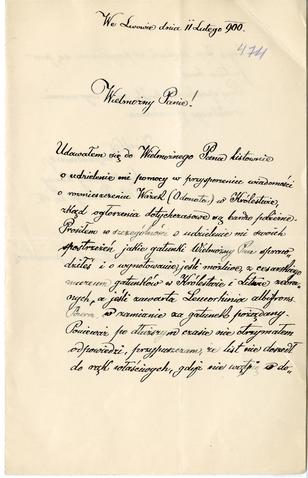 We Lwowie dnia 11 Lutego 900.
471
Wielmożny Panie!
Udawałem się do Wielmożnego Pana listownie
o udzielenie mi pomocy w przysporzeniu wiadomości
o rozmieszczeniu Ważek (Odonata) w Królestwie,
skąd ogłoszenia dotychczasowe są bardzo pobieżne.
Prosiłem w szczególności o udzielenie mi swoich
spostrzeżeń jakie gatunki Wielmożny Pan spraw-
dziłeś i o wynotowanie, jeśli możliwe, z cesarskiego
muzeum gatunków w Królestwie i Litwie zebra-
nych, a jeśli Leucorhinia albifrons
w zamianie za gatunek pożądany.
Ponieważ po dłuższym czasie nie otrzymałem
odpowiedzi, przypuszczam, że list nie doszedł
do rąk właściwych, gdyż nie wątpię o do-